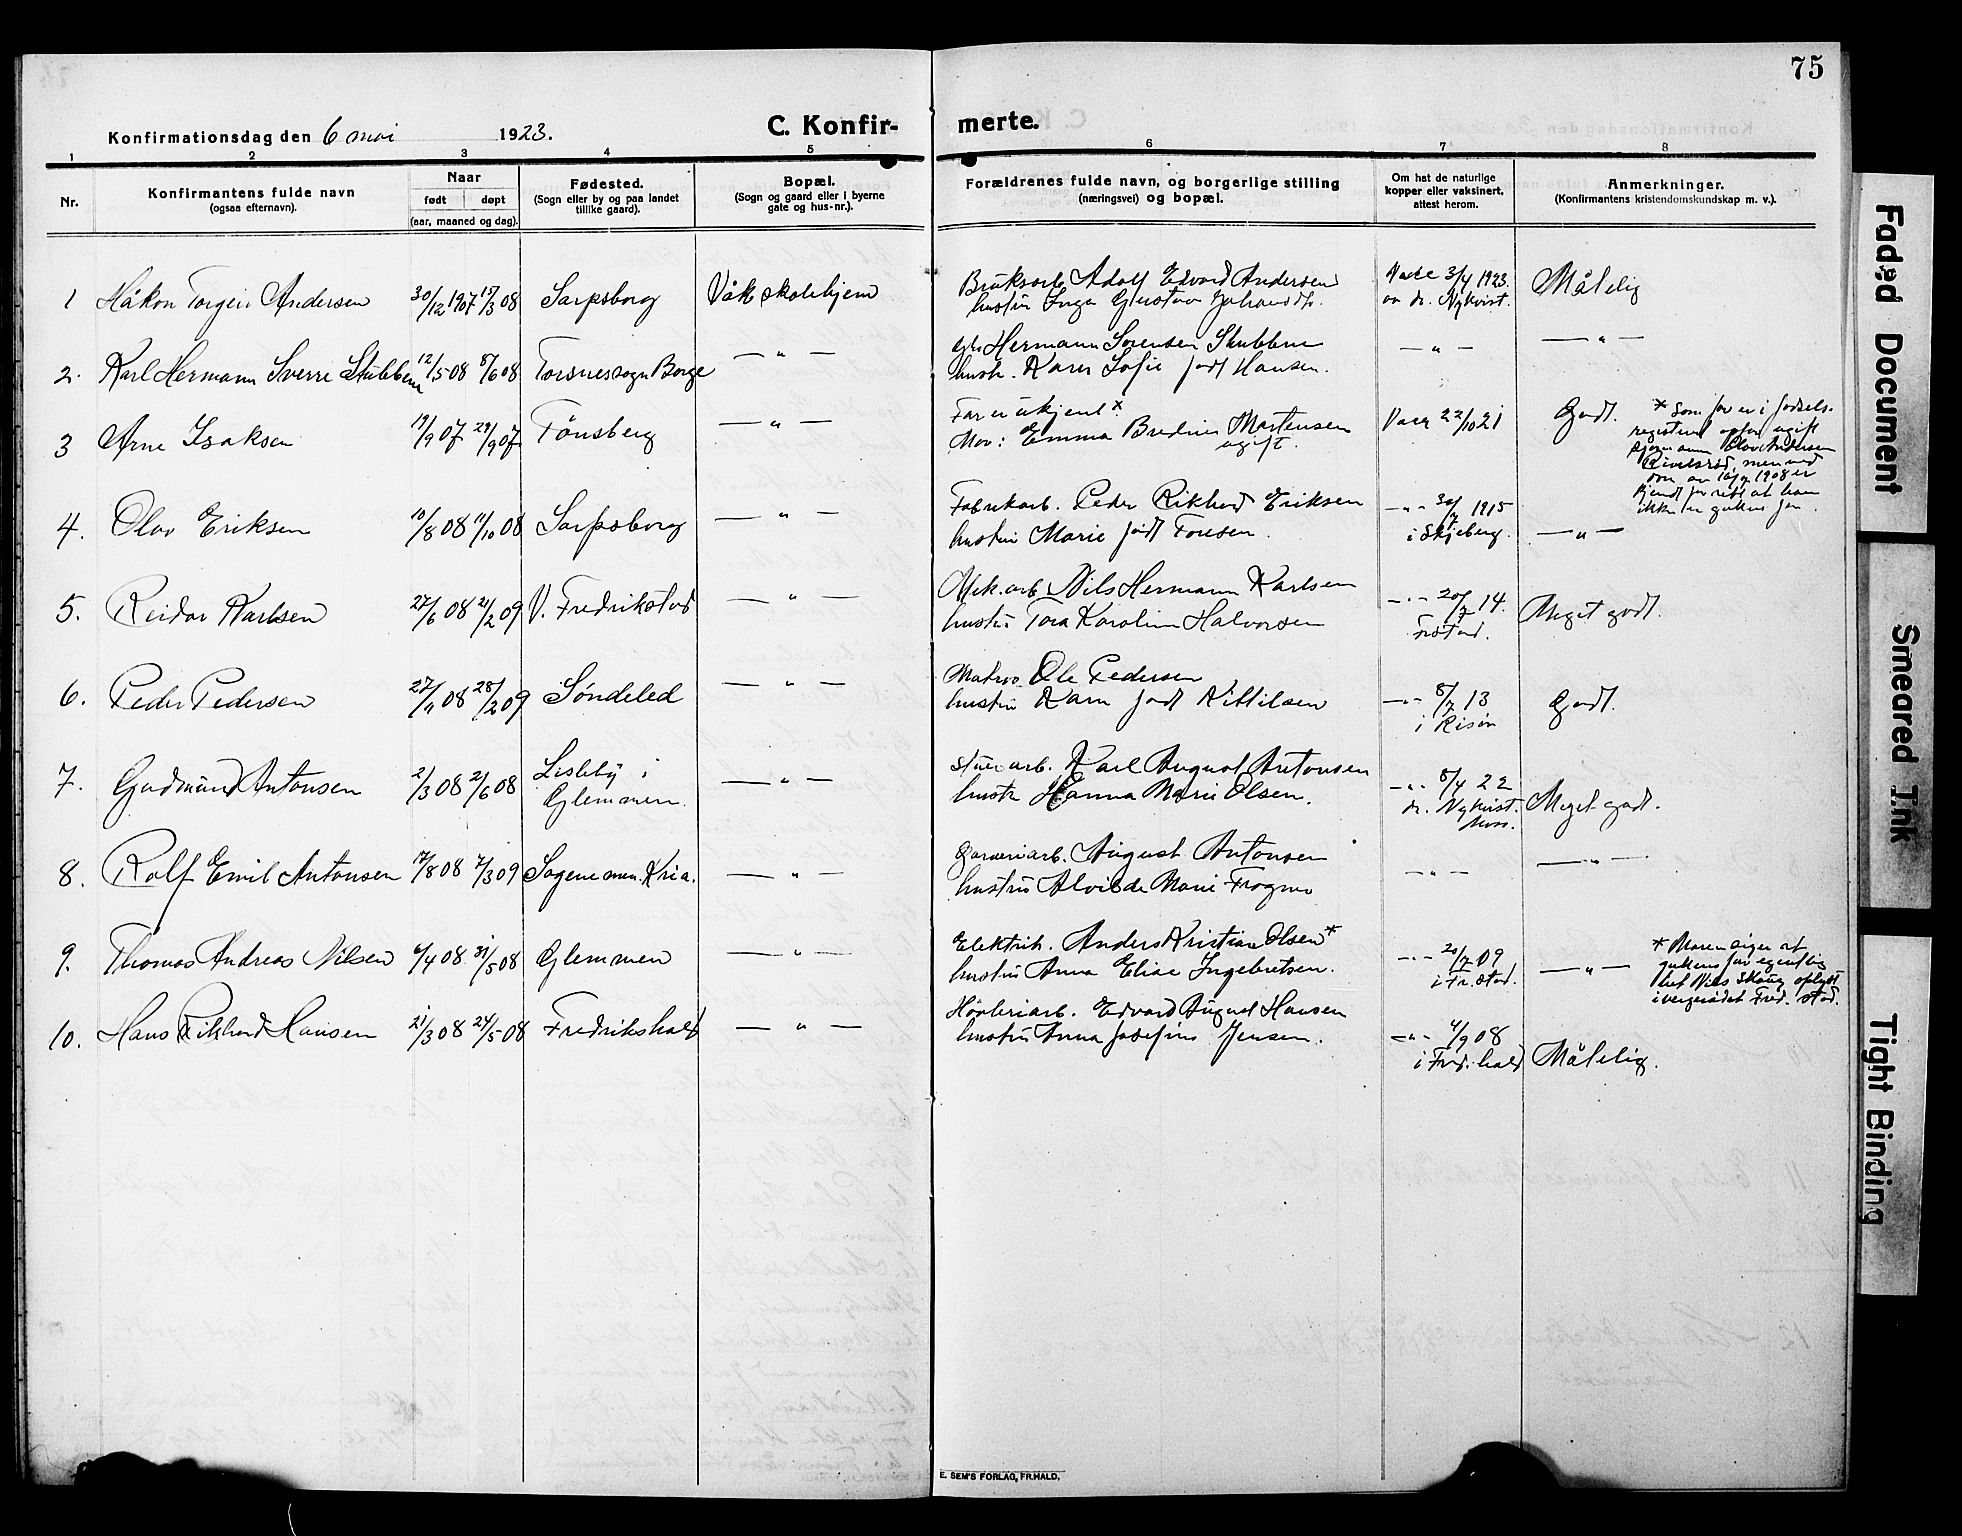 75
Konfirmationsdag den 6 mai 1923.
C. Konfirmerte.
1 2 3 4 5 6 7 8
Nr.
Konfirmantens fulde navn
(ogsaa efternavn).
Naar
født døpt
(aar, maaned og dag).
Fødested.
(Sogn eller by og paa landet
tillike gaard).
Bopæl.
(Sogn og gaard eller i byerne
gate og hus-nr.).
Forældrenes fulde navn, og borgerlige stilling
(næringsvei) og bopæl.
Om hat de naturlige
kopper eller vaksinert,
attest herom.
Anmerkninger.
(Konfirmantens kristendomskundskap m. v.).
1 Håkon Torgeir Andersen 30/12 1907 15/3 08 Sarpsborg Våk skolehjem
Bruksarb. Adolf Edvard Andersen
hustru Inga Gustava Johansdtr.
Vacc 3/4 1923
av dr. Nykvist.
Måtelig
2. Karl Hermann Sverre Stubbene 12/5 08 8/6 08 Torsnes sogn Borge — " —
Hermann Sorensen Stubbene
hustr. Karen Sofie født Hansen.
— " —
— " —
3 Arne Isaksen 19/9 07 29/9 07 Tønsberg — " —
Far er ukjent x
Mor: Emma Bredine Martensen
ugift.
Vacc 22/10 21
Godt.
* Som far er i fødsels-
registeret opført ugift
Olav Andersen
men ved
dom av 1908 er
kjendt for rett at han
ikke er guttens far.
4. Olav Eriksen 10/8 08 11/10 08 Sarpsborg — " —
Fabrikarb. Peder Rikhard Eriksen
hustru Marie født Toresen.
— " — 30/7 1915
i Skjeberg.
— " —
5. Reidar Karlsen 27/6 08 21/2 09 V. Fredrikstad — " —
Mek. arb. Nils Hermann Karlsen
hustru Tora Karoline Halvorsen
— " — 20/7 14.
Frstad.
Meget godt.
6. Peder Pedersen 27/11 08 28/2 09 Søndeled — " —
Matros Ole Pedersen
hustru Karn født Kittilsen
— " — 8/7 13
i Risør
Godt.
7. Gudmund Antonsen 2/3 08 21/6 08 Lisleby i
Glemmen. — " —
Stuerarb. Karl August Antonsen
hustr Hanna Marie Olsen.
— " — 8/4 22
dr. Nykvist.
Moss.
Meget godt.
8. Rolf Emil Antonsen 17/8 08 7/3 09 Sagene men. Kria. — " —
Garveriarb. August Antonsen
hustru Alvilde Marie Frogner
— " —
— " —
9. Thomas Andreas Nilsen 6/4 08 31/5 08 Glemmen — " —
Elektrik. Anders Kristian Olsen *
hustru Anna Elise Ingebretsen.
— " — 20/7 09
i Fr.stad.
— " —
* Moren siger at
guttens far egentlig
het Nils Skaug oplyst
i vergerådet Fred. stad.
10. Hans Rikhard Hansen 21/3 08 24/5 08 Fredrikshald — " —
Høvleriarb. Edvard August Hansen
hustru Anna Josefine Jensen.
— " — 4/9 08
i Fred.hald
Måtelig.
E. SEM'S FORLAG, FR.HALD.
Faded Document
Smeared Ink
Tight Binding